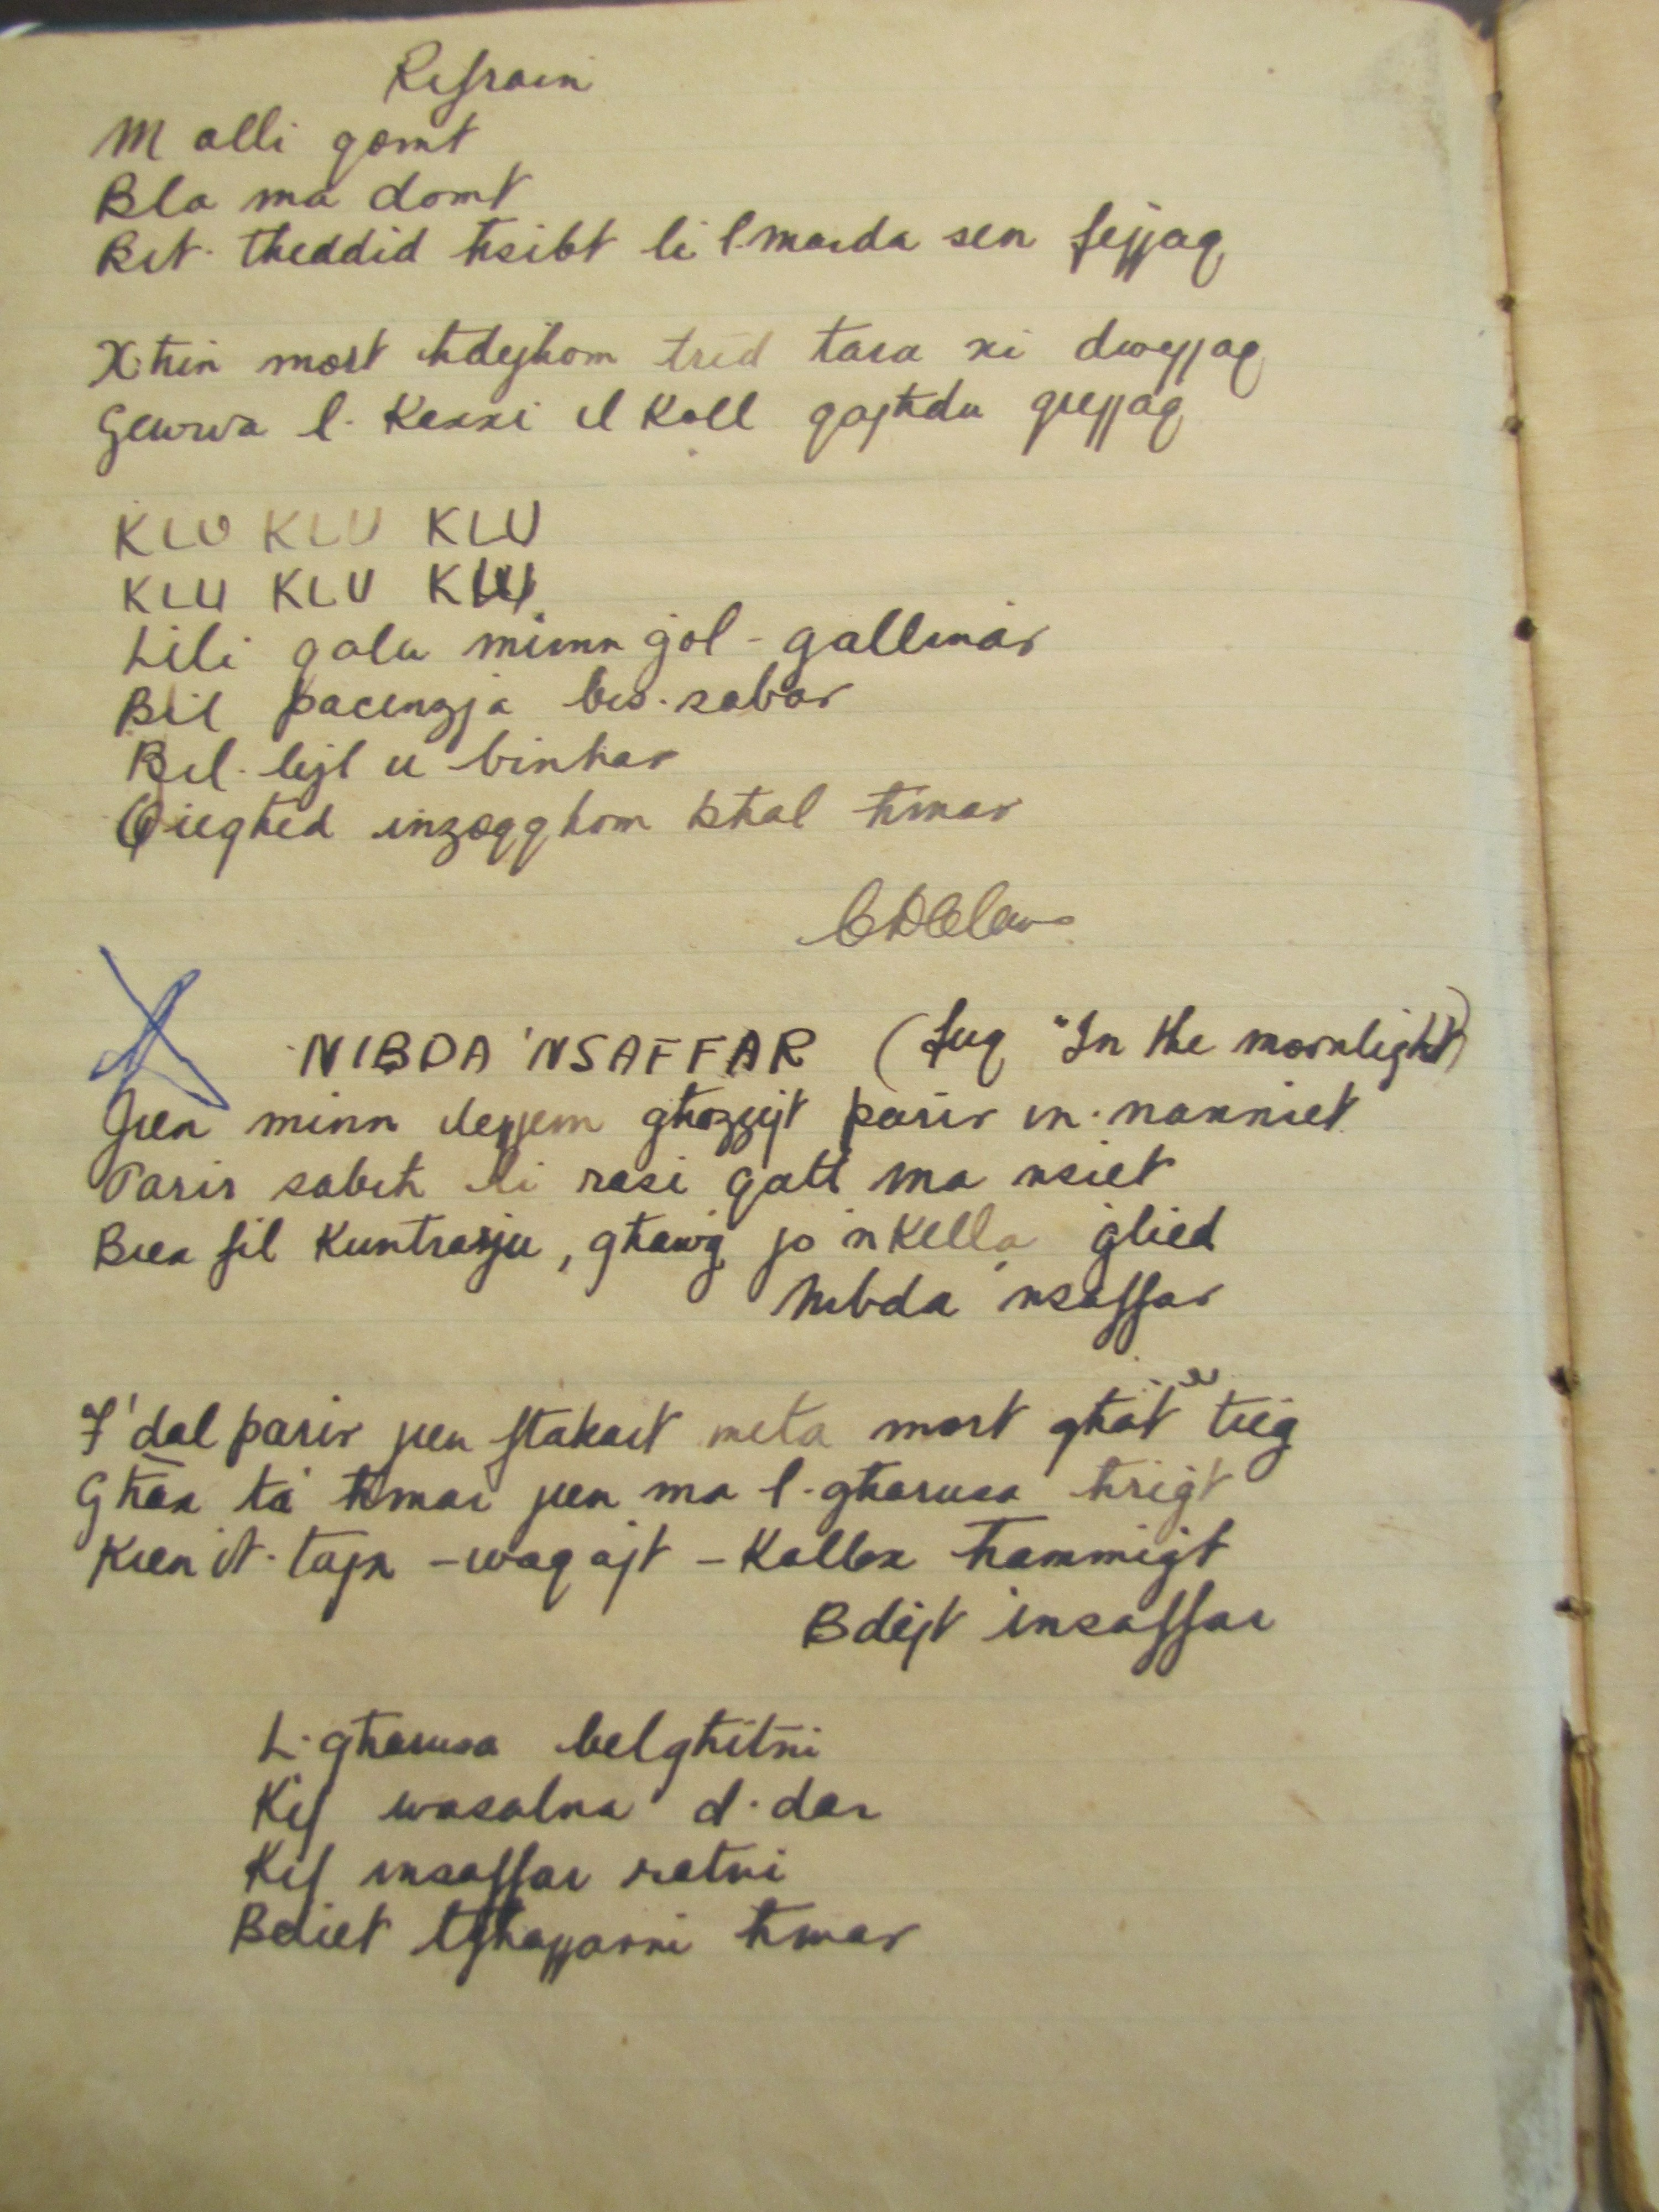 Refrain
M alli qomt
Bla ma domt
Bit-theddid ħsibt li l-marda sen fejjaq
X'ħin mort ħdejhom trid tara xi dwejjaq
Ġewwa l-kexxi il koll qajħdu qrejjaq
KLU KLU KLU
KLU KLU KLU
Lili qalu minn ġol-gallinar
Bil paċenzja bis-sabar
Bil-lejl u binhar
Qiegħed inżoqqhom bħal ħmar
NIBDA 'NSAFFAR (fuq "In the moonlight")
Jien minn dejjem għożżejt parir in-nanniet
Parir sabiħ li rasi qatt ma nsiet
Biex fil kuntrarju, għawġ jo nkella ġlied
Nibda 'nsaffar
F'dal parir jien ftakart meta mort għat tieġ
Għax ta ħmar jien ma l-għarusa ħriġt
Kien it-tajn - waqajt - kollox ħammiġt
Bdejt insaffar
L-għarusa belgħitni
Kif wasalna d-dar
Kif insaffar ratni
Bdiet tgħajjarni ħmar